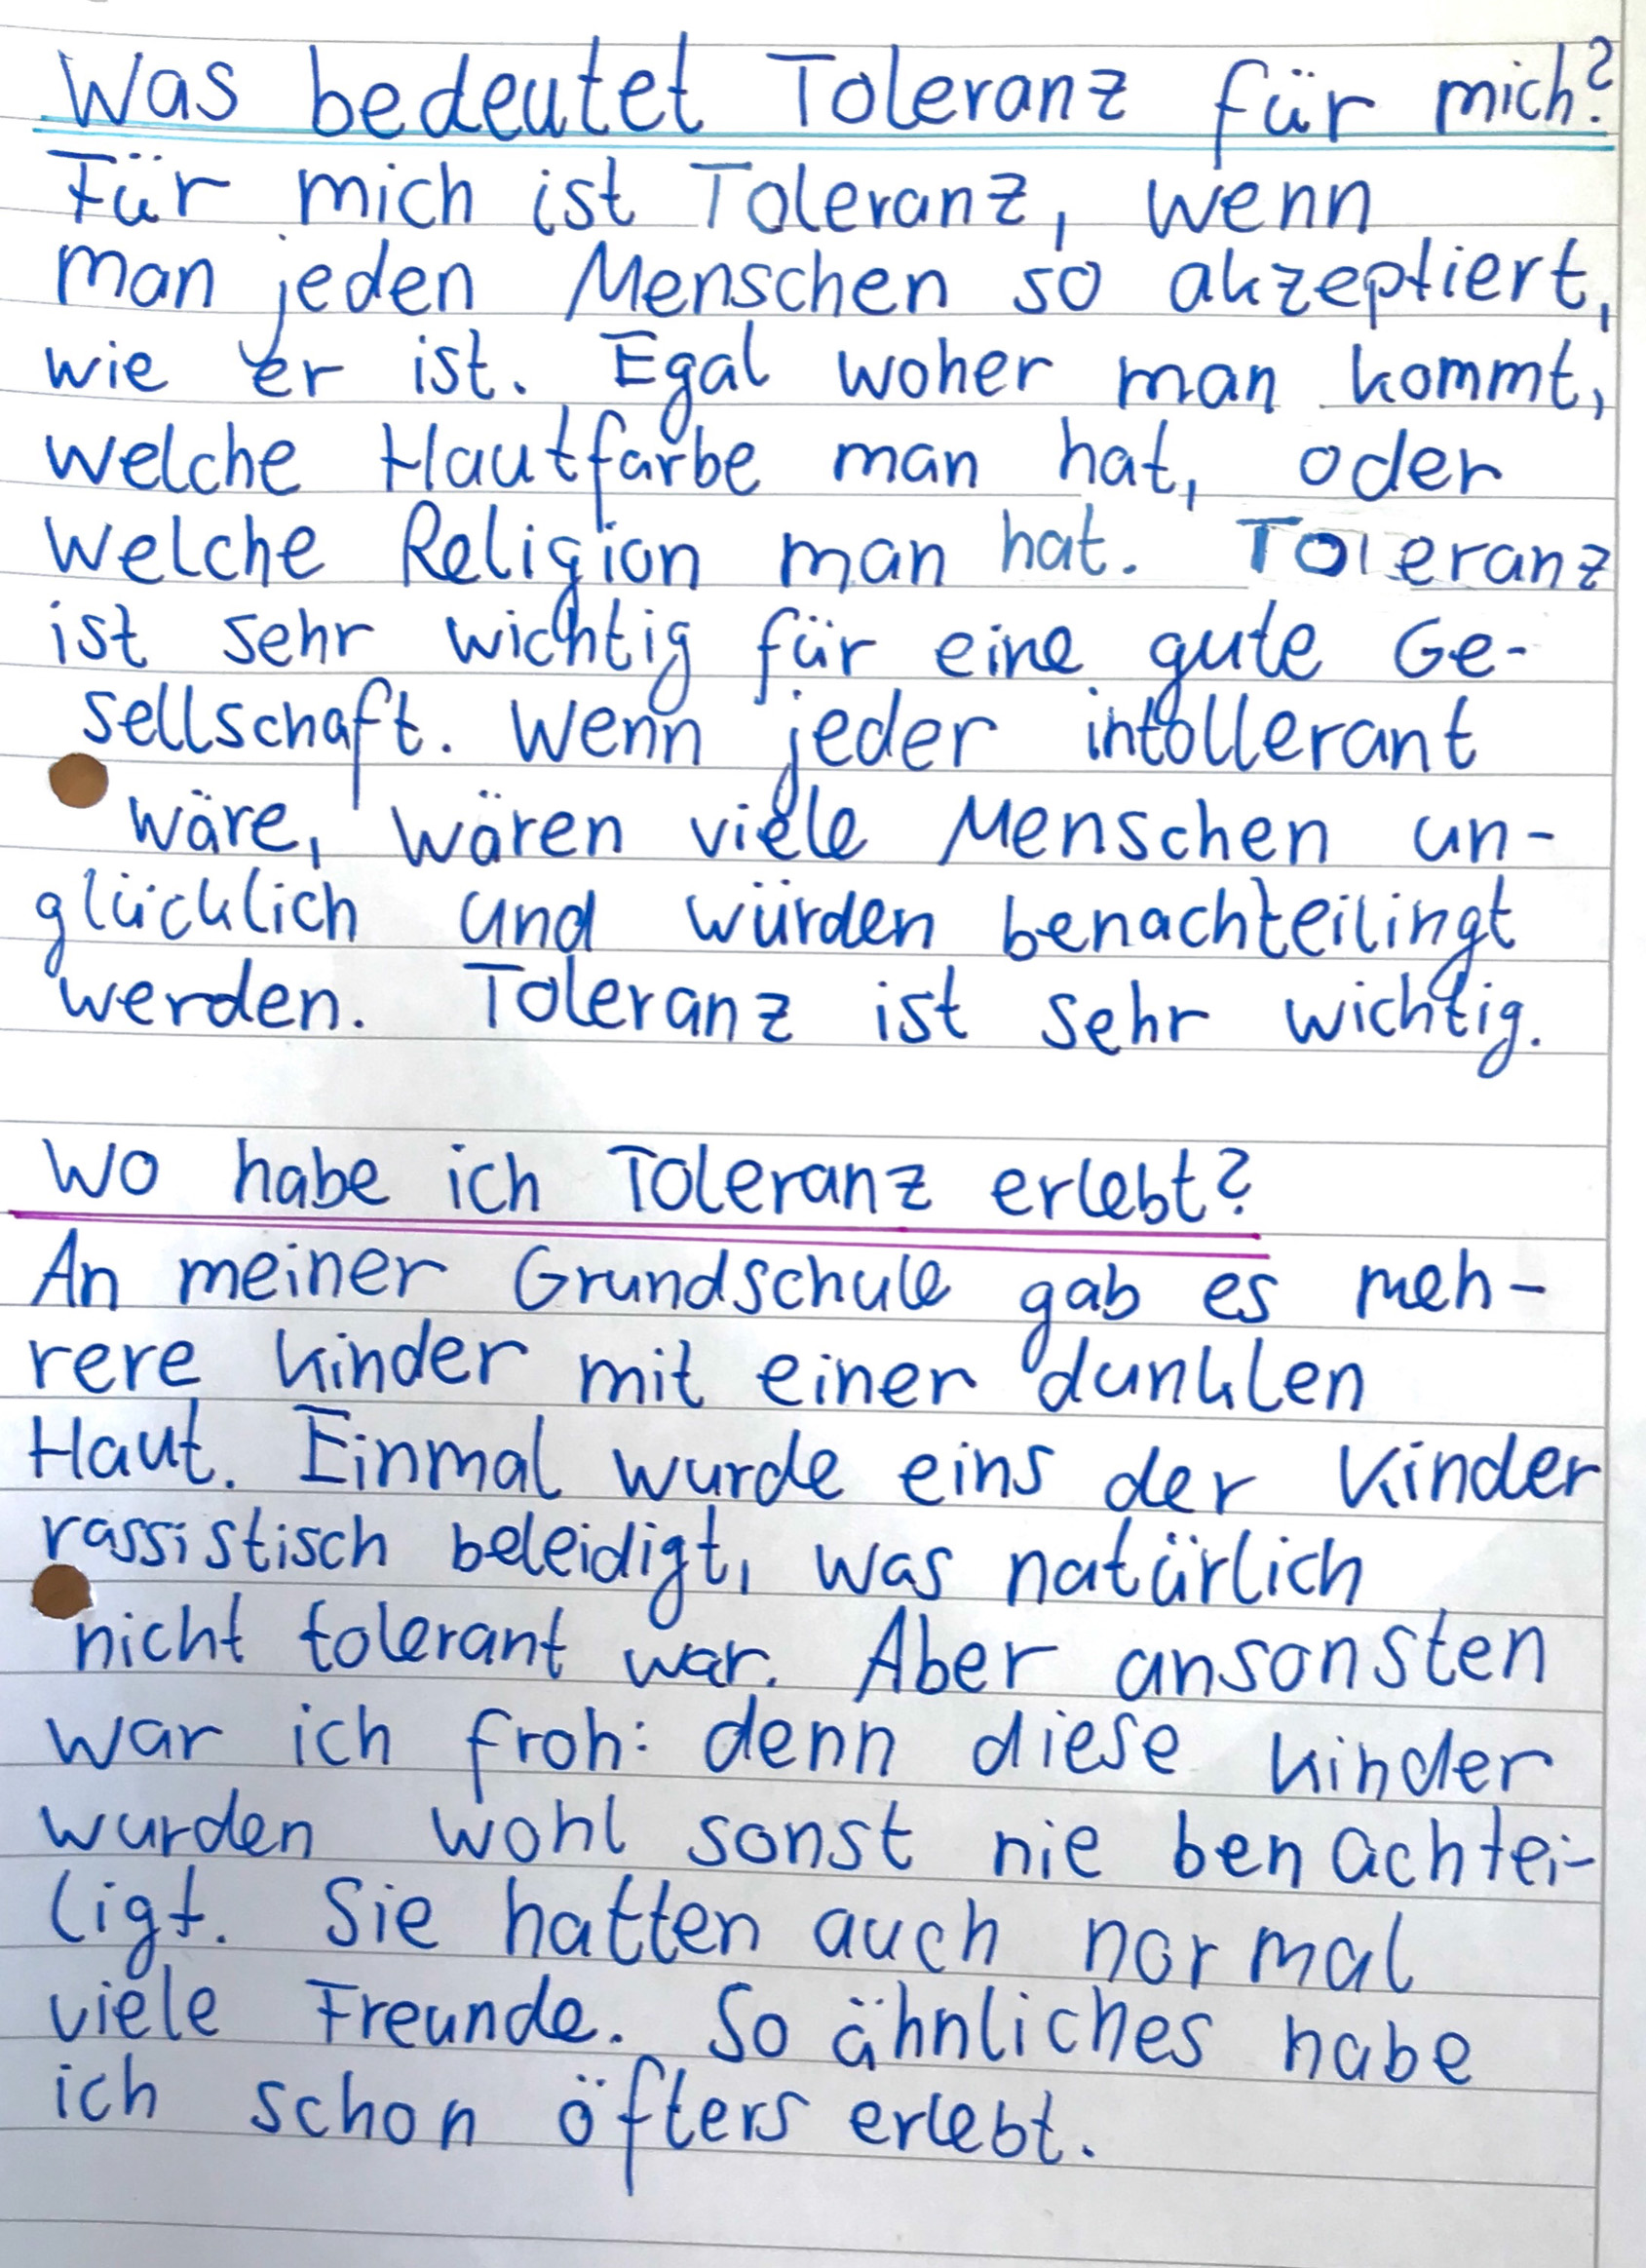 Was bedeutet Toleranz für mich?
Für mich ist Toleranz, wenn
man jeden Menschen so akzeptiert,
wie er ist. Egal woher man kommt,
welche Hautfarbe man hat, oder
welche Religion man hat. Toleranz
ist sehr wichtig für eine gute Ge-
sellschaft. Wenn jeder intollerant
wäre, wären viele Menschen un-
glücklich und würden benachteilingt
werden. Toleranz ist sehr wichtig.
Wo habe ich Toleranz erlebt?
An meiner Grundschule gab es meh-
rere Kinder mit einer dunklen
Haut. Einmal wurde eins der Kinder
rassistisch beleidigt, was natürlich
nicht tolerant war. Aber ansonsten
war ich froh: denn diese Kinder
wurden wohl sonst nie benachtei-
ligt. Sie hatten auch normal
viele Freunde. So ähnliches habe
ich schon öfters erlebt.